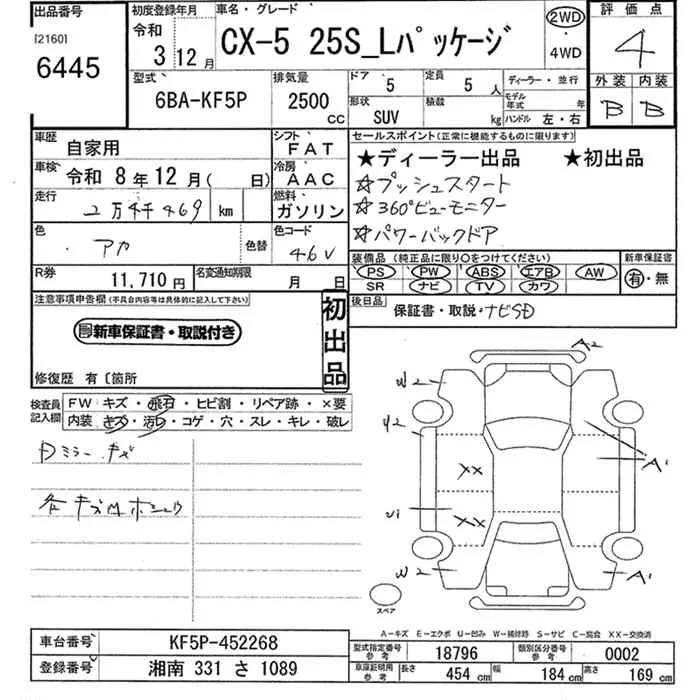 出品番号
[2160]
6445
初度登録年月
令和
3年12月
車名・グレード
CX-5 25S_Lパッケージ
2WD
・
4WD
評価点
4
外装 内装
B B
型式
6BA-KF5P
排気量
2500
CC
ドア
5
定員
5人
形状
SUV
積載
kg
ディーラー・並行
モデル年式 年
ハンドル 左・右
車歴
自家用
シフト
FAT
車検 令和 8年12月( 日)
冷房
AAC
走行
2万4千469 km
燃料
ガソリン
色
・アカ
色替
色コード
46V
R券
11,710円
名変通知期限
月 日
セールスポイント(正常に機能するものに限ります)
★ディーラー出品 ★初出品
☆プッシュスタート
☆360°ビューモニター
☆パワーバックドア
装備品(純正品に限り○をつけてください)
PS PW ABS エアB AW
SR ナビ TV カワ
新車保証書
有・無
後日品
保証書・取説・ナビSD
注意事項申告欄(不具合内容等は具体的に記入して下さい)
新車保証書・取説付き
初出品
修復歴 有〔箇所
検査員記入欄
FW キズ・飛石・ヒビ割・リペア跡・×要
内装 キズ・汚レ・コゲ・穴・スレ・キレ・破レ
Dミラーキズ
A2
W2
Y2
XX
A1
U1
XX
W2
A1
スペア
A−キズ E−エクボ U−凹み W−補修跡 S−サビ C−腐食 XX−交換済
車台番号
KF5P-452268
登録番号
湘南 331 さ 1089
型式指定番号
参考
18796
類別区分番号
参考
0002
車庫証明用
参考
長さ 454 cm 幅 184 cm 高さ 169 cm